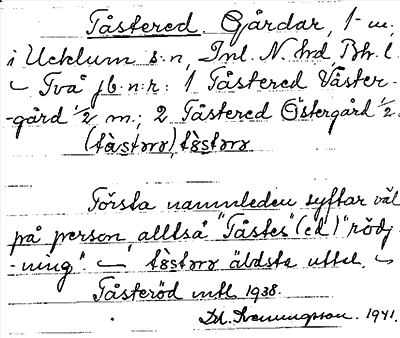 Tåstered. Gårdar, 1 m.
i Ucklum s:n, Inl. N. hrd, Bh. l.
– Två jb.n:r: 1 Tåstered Väster-
-gård ½ m.; 2 Tåstered Östergård ½.
Första namnleden syftar väl
på person, alltså "Tåstes" (ed) "rödj-
-ning". –
äldsta uttal. –
Tåsteröd mtl 1938.
1941.